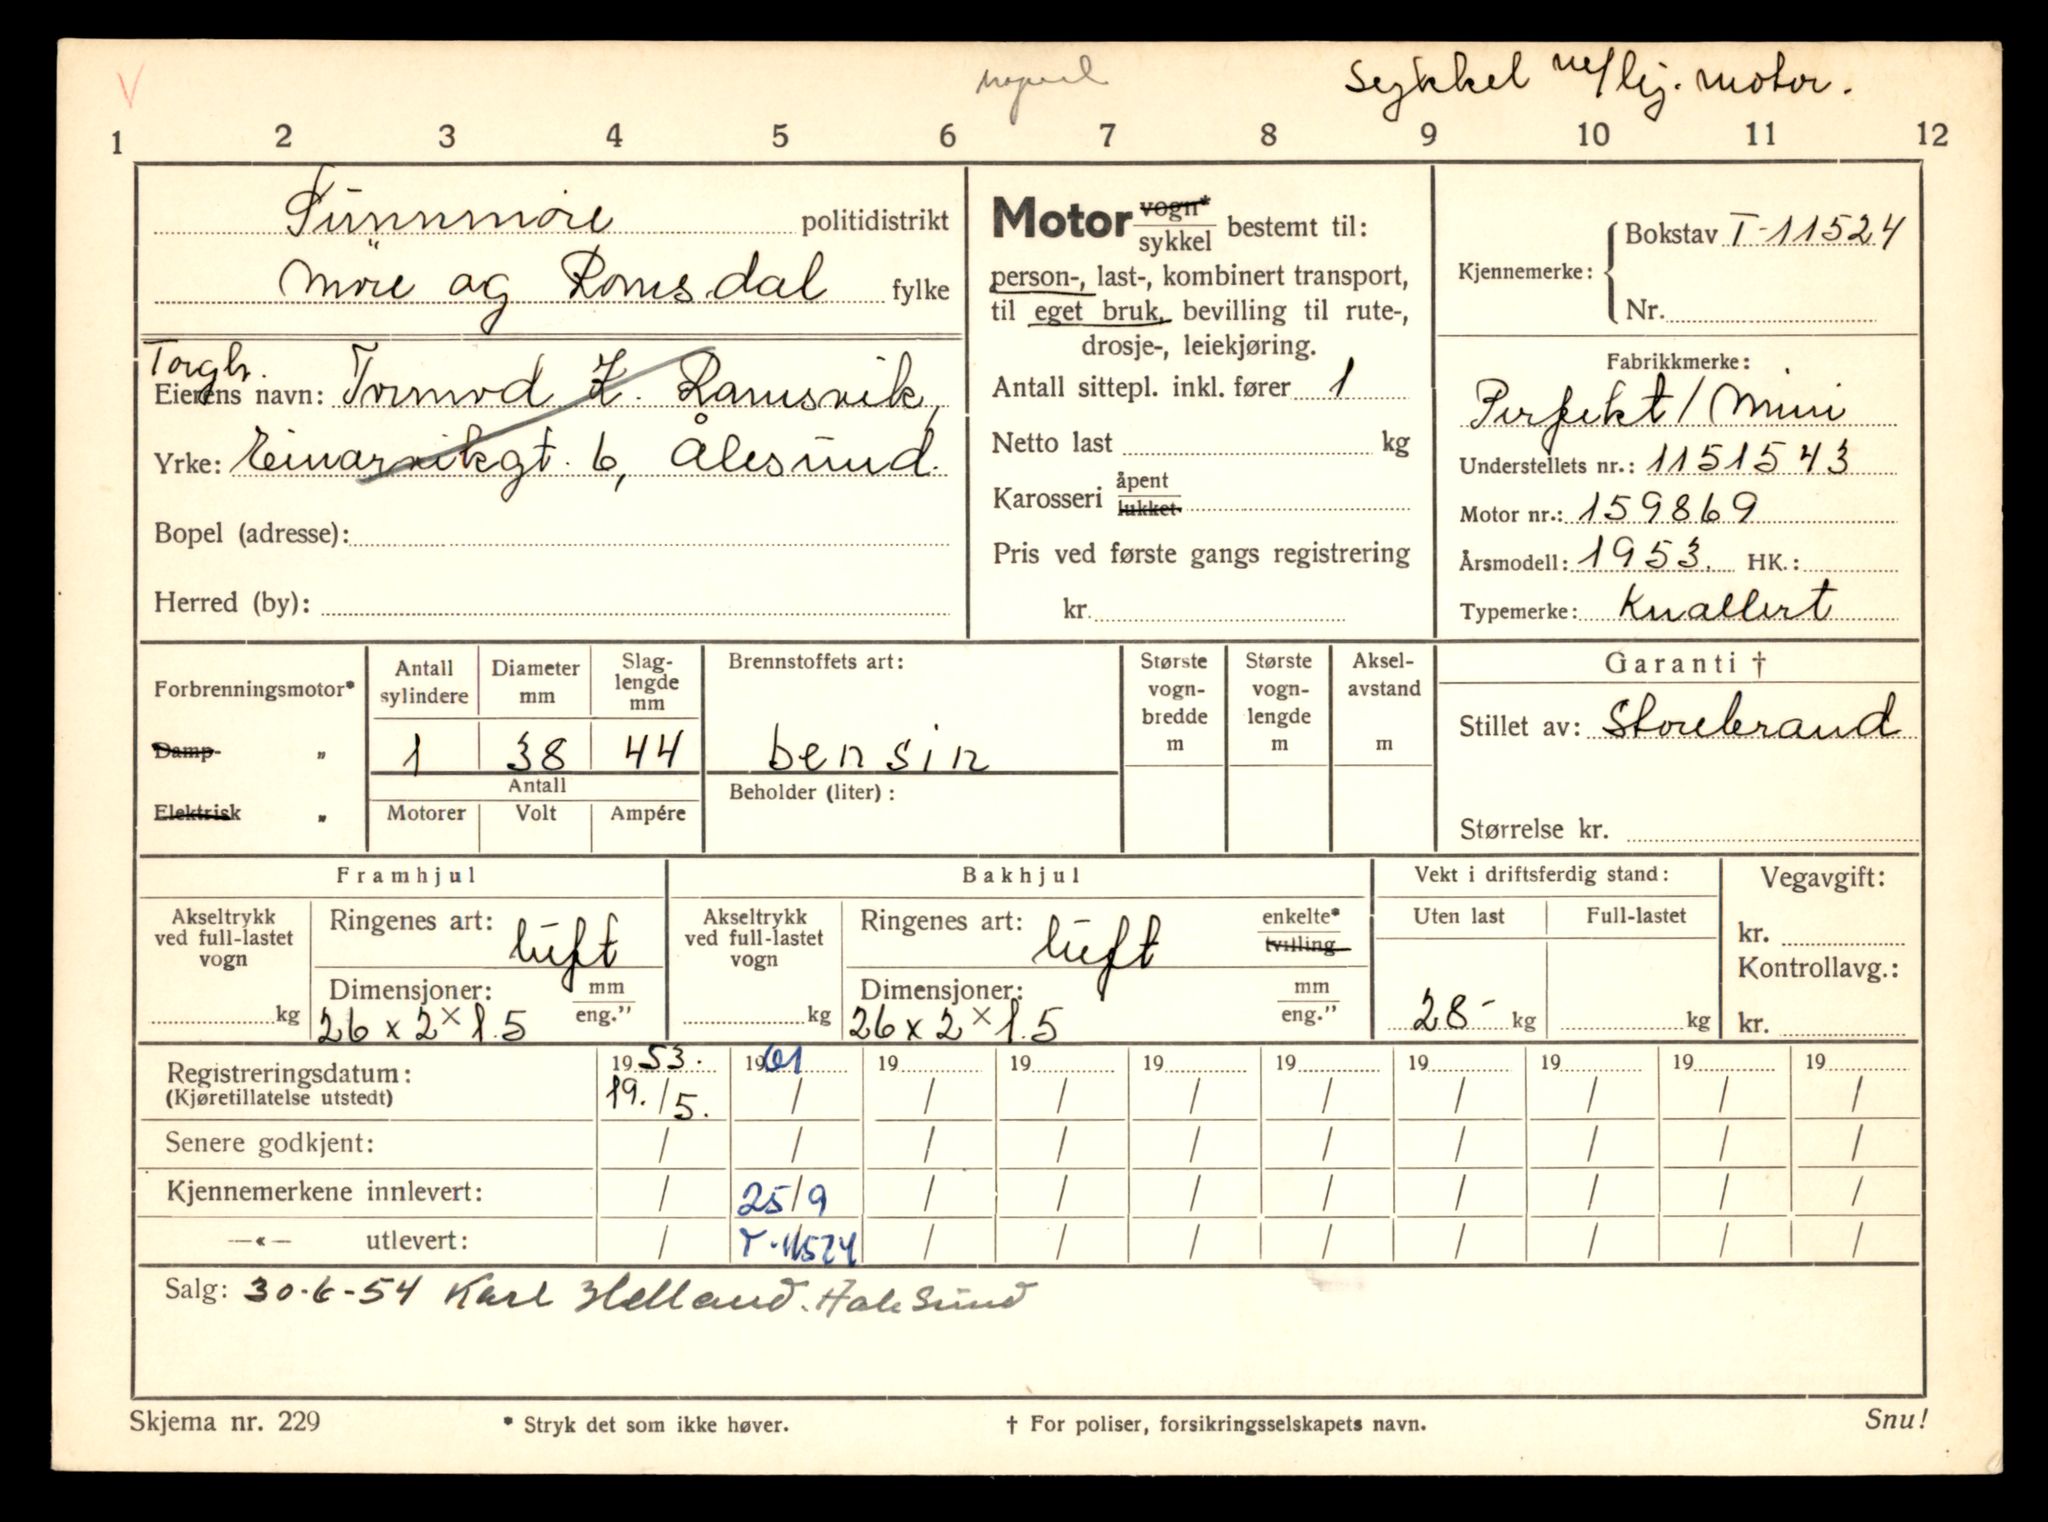 V
moped
Sykkel m/hj. motor.
1 2 3 4 5 6 7 8 9 10 11 12
Sunnmøre politidistrikt
Møre og Romsdal fylke
Eierens navn: Tormod Z. Ramsvik,
Yrke: Einarvikgt. 6, Ålesund.
Bopel (adresse):
Herred (by):
Motor vogn* sykkel bestemt til:
person-, last-, kombinert transport,
til eget bruk, bevilling til rute-,
drosje-, leiekjøring.
Antall sittepl. inkl. fører 1
Netto last kg
Karosseri åpent lukket
Pris ved første gangs registrering
kr.
Kjennemerke: Bokstav T-11524
Nr.
Fabrikkmerke:
Perfekt / Mini
Understellets nr.: 1151543
Motor nr.: 159869
Årsmodell: 1953. HK.:
Typemerke: Knallert
Forbrenningsmotor*
Damp- „
Elektrisk „
Antall sylindere
1
Diameter mm
38
Slaglengde mm
44
Antall
Motorer Volt Ampére
Brennstoffets art:
bensin
Beholder (liter):
Største vognbredde m
Største vognlengde m
Akselavstand m
Garanti †
Stillet av: Storebrand
Størrelse kr.
Framhjul
Akseltrykk ved full-lastet vogn
kg
Ringenes art: luft
Dimensjoner: mm eng.”
26 x 2 x 1.5
Bakhjul
Akseltrykk ved full-lastet vogn
kg
Ringenes art: luft enkelte* tvilling
Dimensjoner: mm eng.”
26 x 2 x 1.5
Vekt i driftsferdig stand:
Uten last Full-lastet
28- kg kg
Vegavgift:
kr.
Kontrollavg.:
kr.
1953. 1961 19 19 19 19 19 19 19 19
Registreringsdatum: 19./5. / / / / / / / / /
(Kjøretillatelse utstedt)
Senere godkjent: / / / / / / / / / /
Kjennemerkene innlevert: / 25/9 / / / / / / / /
—«— utlevert: / T-11524 / / / / / / / /
Salg: 30-6-54 Karl Helland. Aalesund
Skjema nr. 229
* Stryk det som ikke høver.
† For poliser, forsikringsselskapets navn.
Snu!